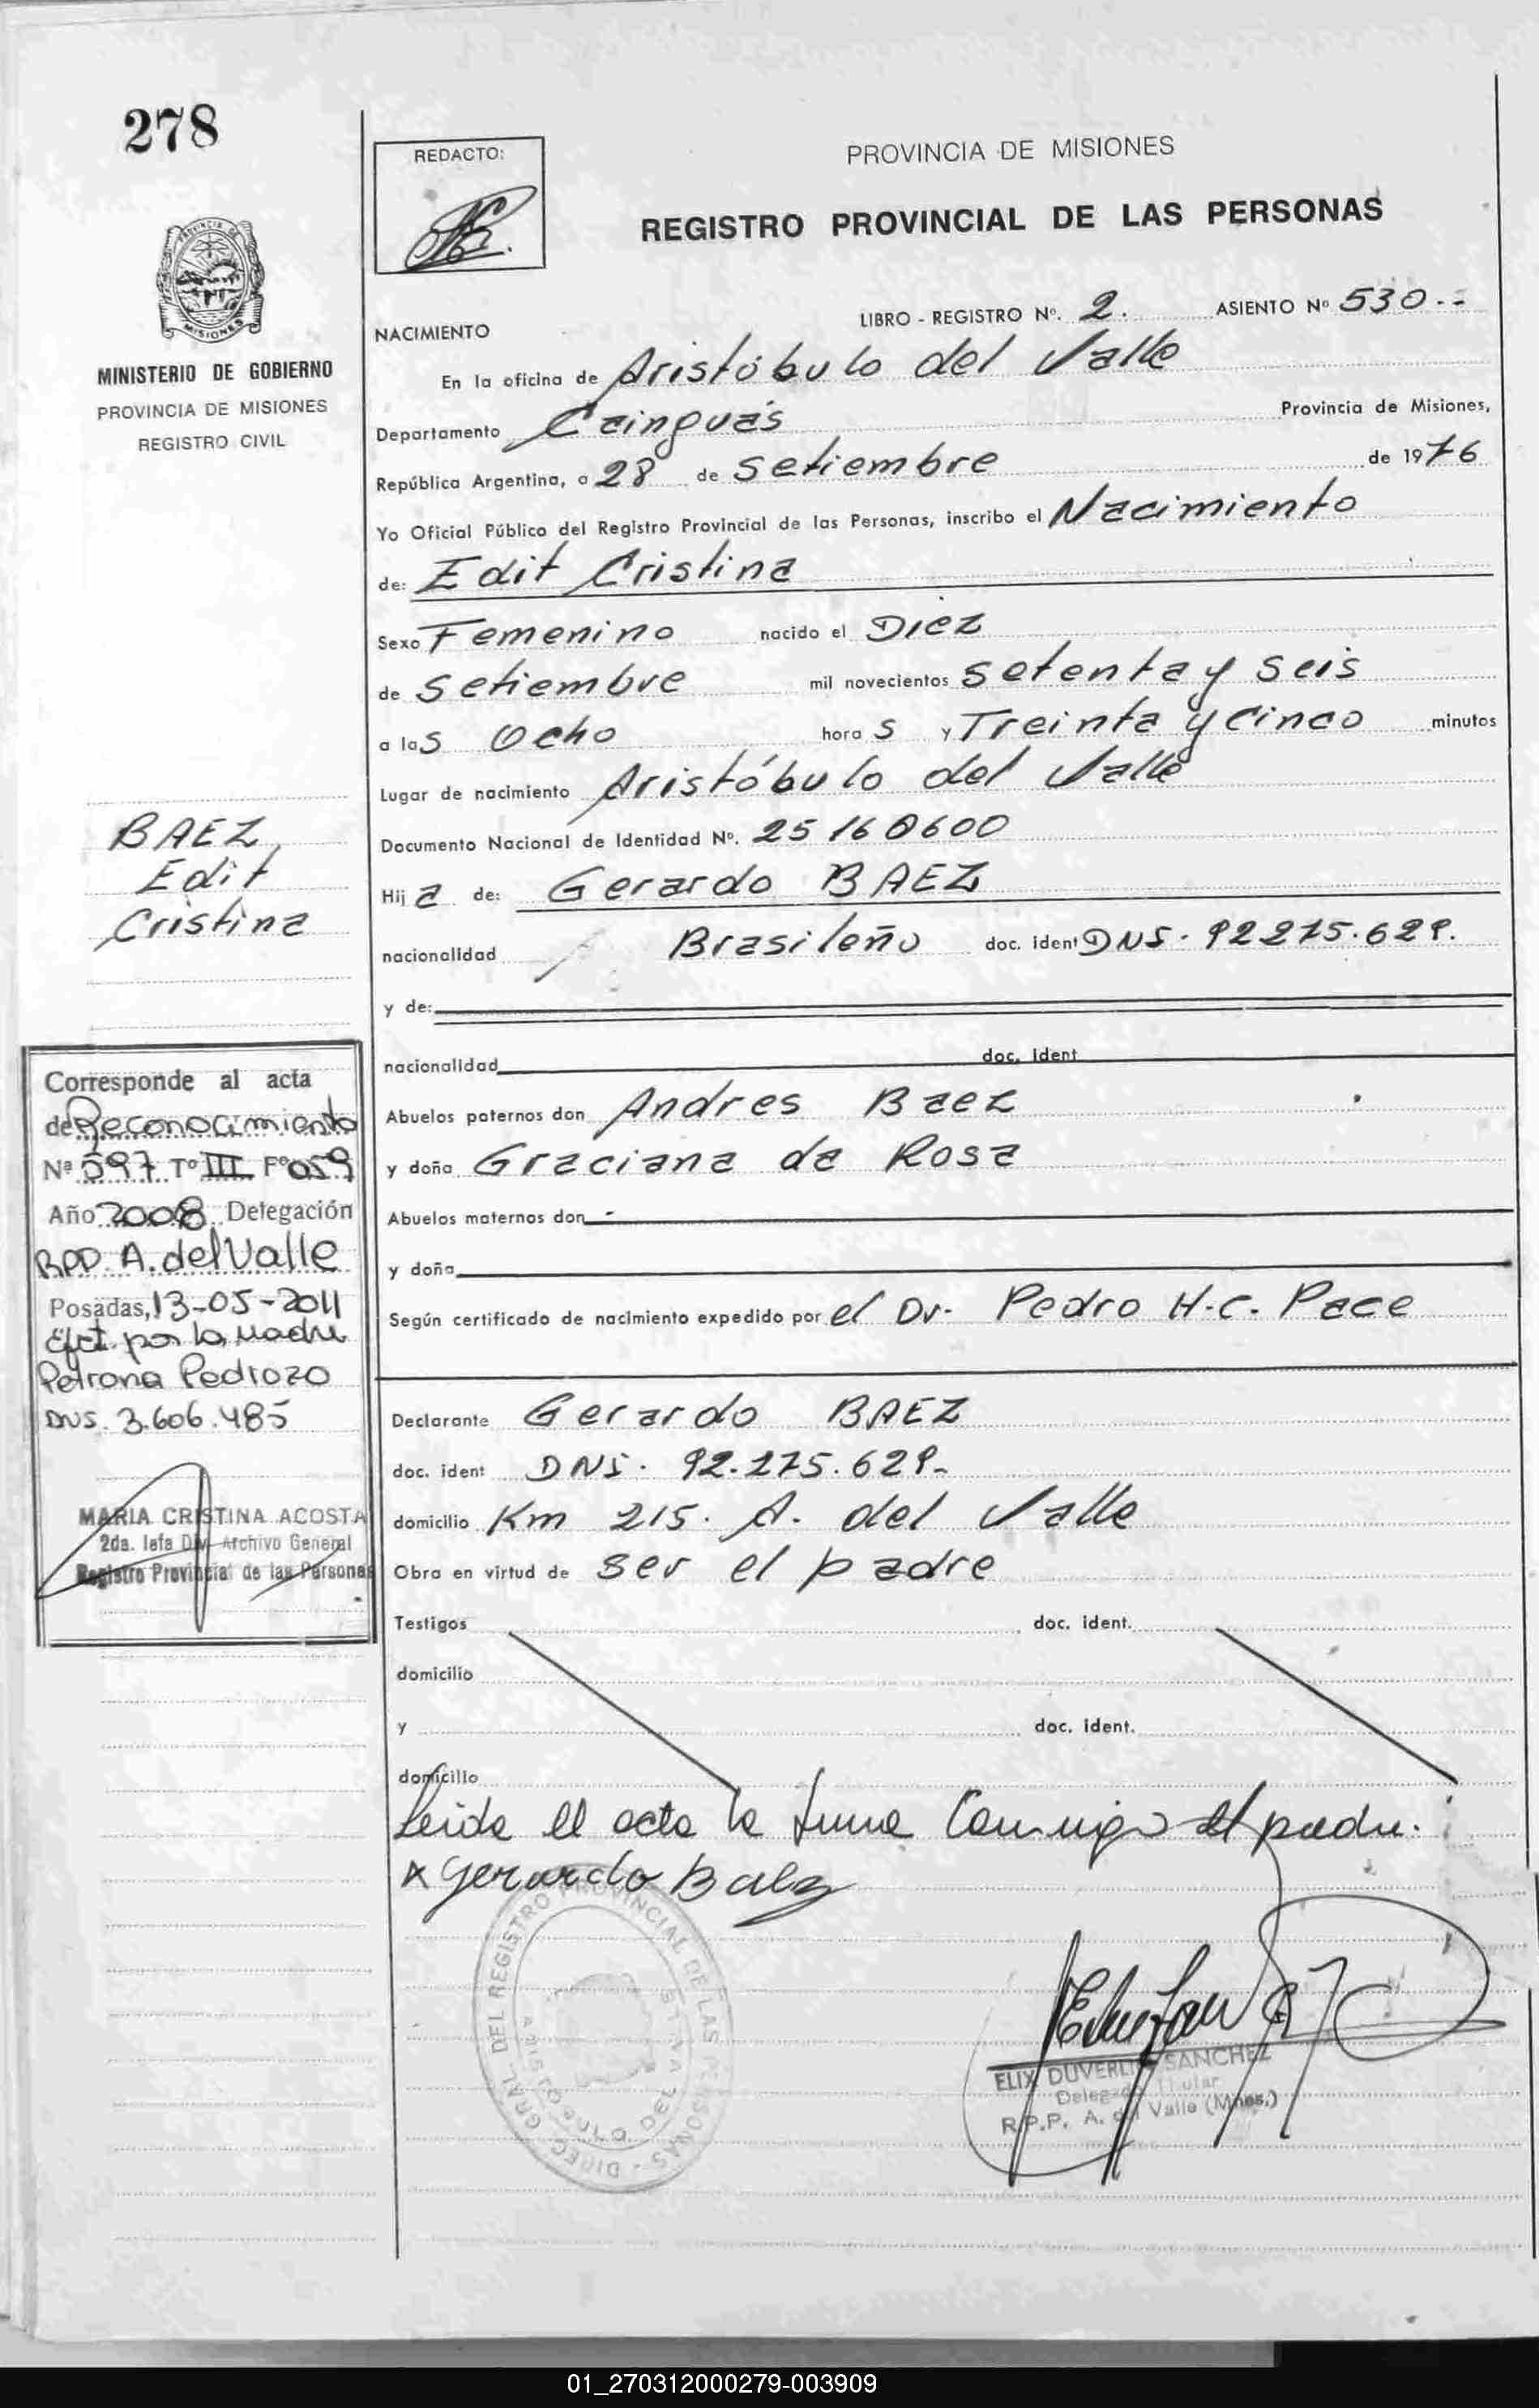 278
REDACTO:
PROVINCIA DE MISIONES
REGISTRO PROVINCIAL DE LAS PERSONAS
MISIONES
MINISTERIO DE GOBIERNO
PROVINCIA DE MISIONES
REGISTRO CIVIL
LIBRO - REGISTRO Nº. 2. ASIENTO Nº 530.--
NACIMIENTO
En la oficina de Aristóbulo del Valle
Departamento Cainguás Provincia de Misiones,
República Argentina, a 28 de Setiembre de 1976
Yo Oficial Público del Registro Provincial de las Personas, inscribo el Nacimiento
de: Edit Cristina
Sexo Femenino nacido el Diez
de Setiembre mil novecientos setenta y seis
a las Ocho horas y Treinta y cinco minutos
Lugar de nacimiento Aristóbulo del Valle
Documento Nacional de Identidad Nº. 25160600
Hija de: Gerardo BAEZ
nacionalidad Brasileño doc. ident DNI. 92275.629.
y de:
nacionalidad doc. ident
Abuelos paternos don Andres Baez
y doña Graciana da Rosa
Abuelos maternos don -
y doña
Según certificado de nacimiento expedido por el Dr. Pedro H.C. Pace
Declarante Gerardo BAEZ
doc. ident DNI. 92.275.629.
domicilio Km 215. A. del Valle
Obra en virtud de ser el padre
Testigos doc. ident.
domicilio
y doc. ident.
domicilio
Leida el acta la firma Conmigo el padre.
x Gerardo Baez
BAEZ,
Edit
Cristina
Corresponde al acta
de Reconocimiento
Nª 597 Tº III Fº 059
Año 2008 Delegación
RPP. A. del Valle
Posadas, 13-05-2011
Efct. por la Madre
Petrona Pedrozo
DNI. 3.606.485
MARIA CRISTINA ACOSTA
2da. Jefa Div. Archivo General
Registro Provincial de las Personas
DIREC. GRAL. DEL REGISTRO PROVINCIAL DE LAS PERSONAS
ELIX DUVERLI SANCHEZ
Delegado Titular
R.P.P. A. del Valle (Mnes.)
01_270312000279-003909